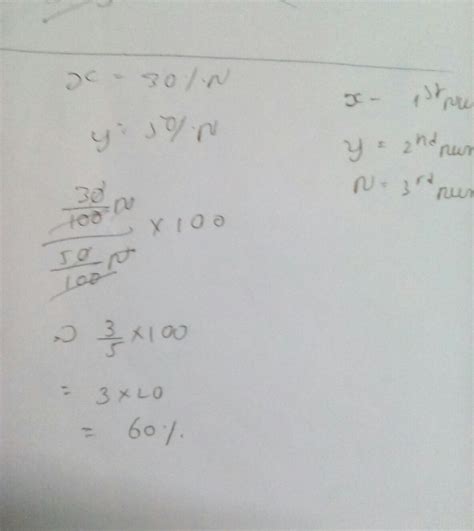 x = 30%.N
y = 50%.N
x - 1st nu
y = 2nd num
N = 3rd num
30/100 N
50/100 N
× 100
⇒ 3/5 × 100
= 3 × 20
= 60%.